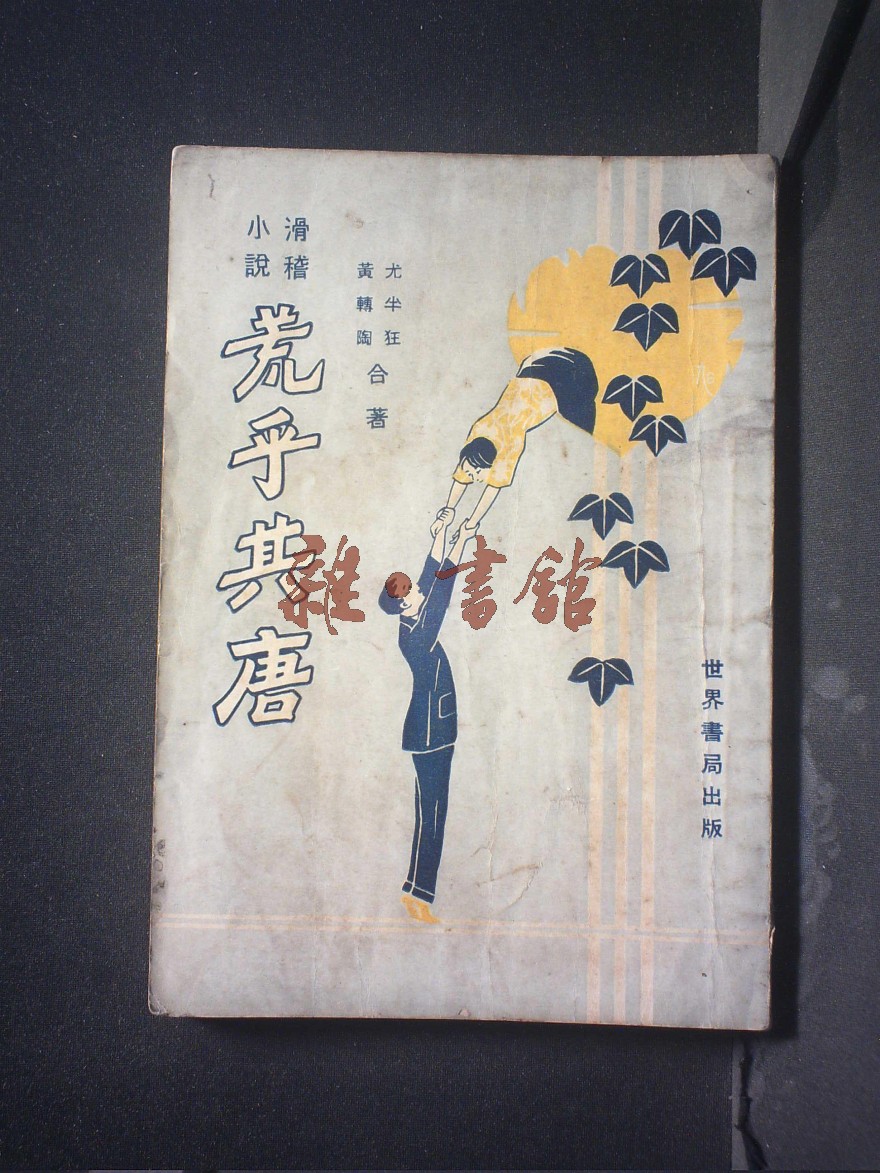 滑稽
小說
荒乎其唐
尤半狂
黃轉陶
合著
世界書局出版
雜·書館